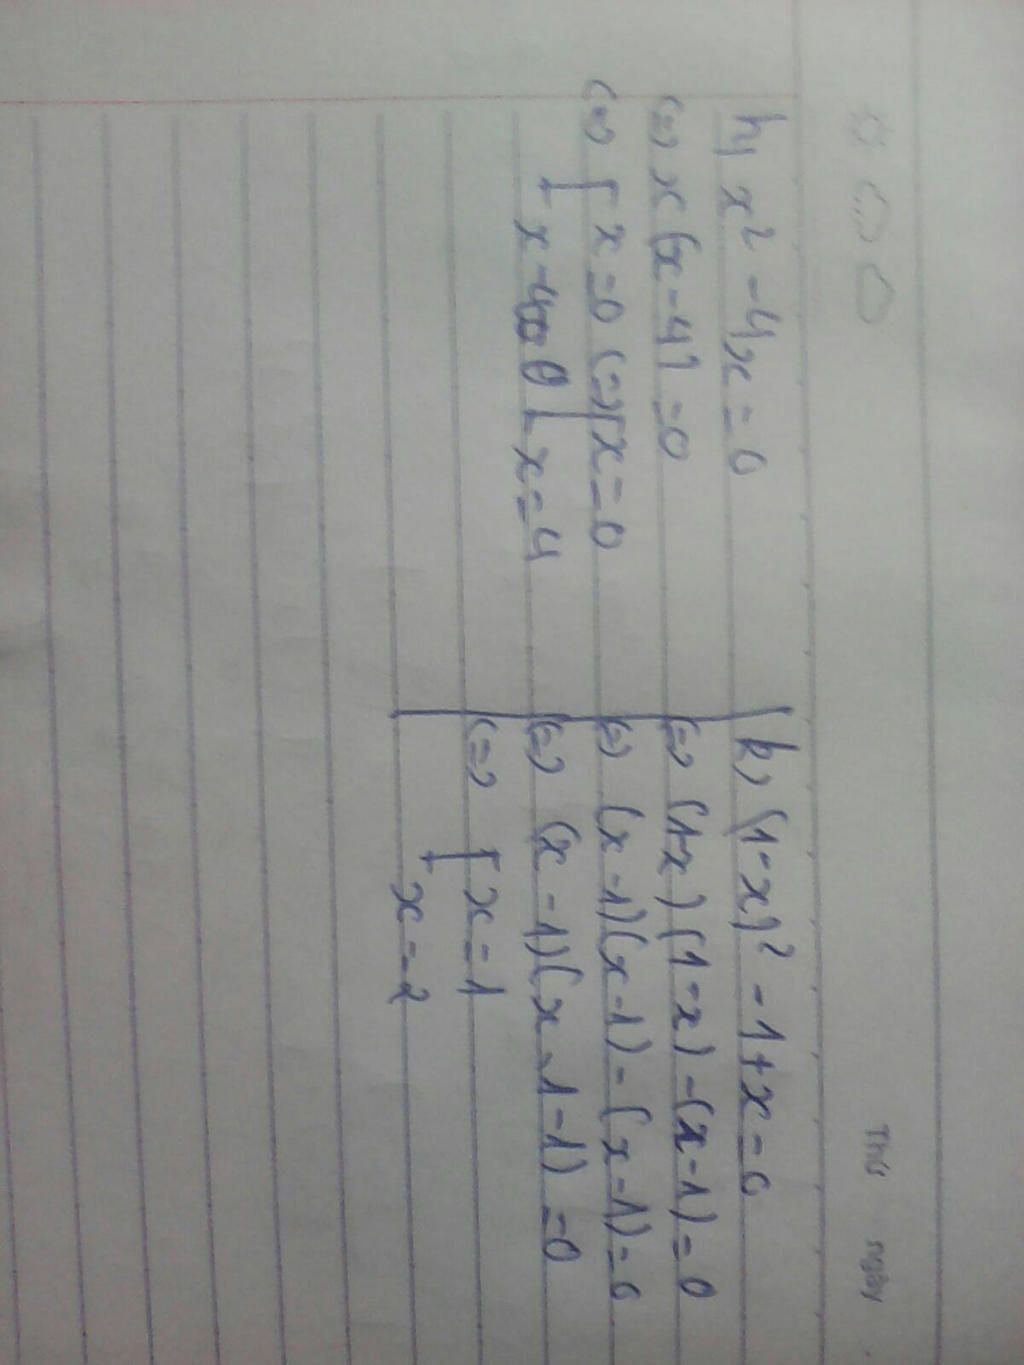 Thứ ngày
h, x² - 4x = 0
(=) x (x - 4) = 0
(=) [ x = 0 (=) [ x = 0
x - 4 = 0 x = 4
k, (1 - x)² - 1 + x = 0
(=) (1 - x) (1 - x) - (x - 1) = 0
(=) (x - 1) (x - 1) - (x - 1) = 0
(=) (x - 1) (x - 1 - 1) = 0
(=) [ x = 1
x = 2